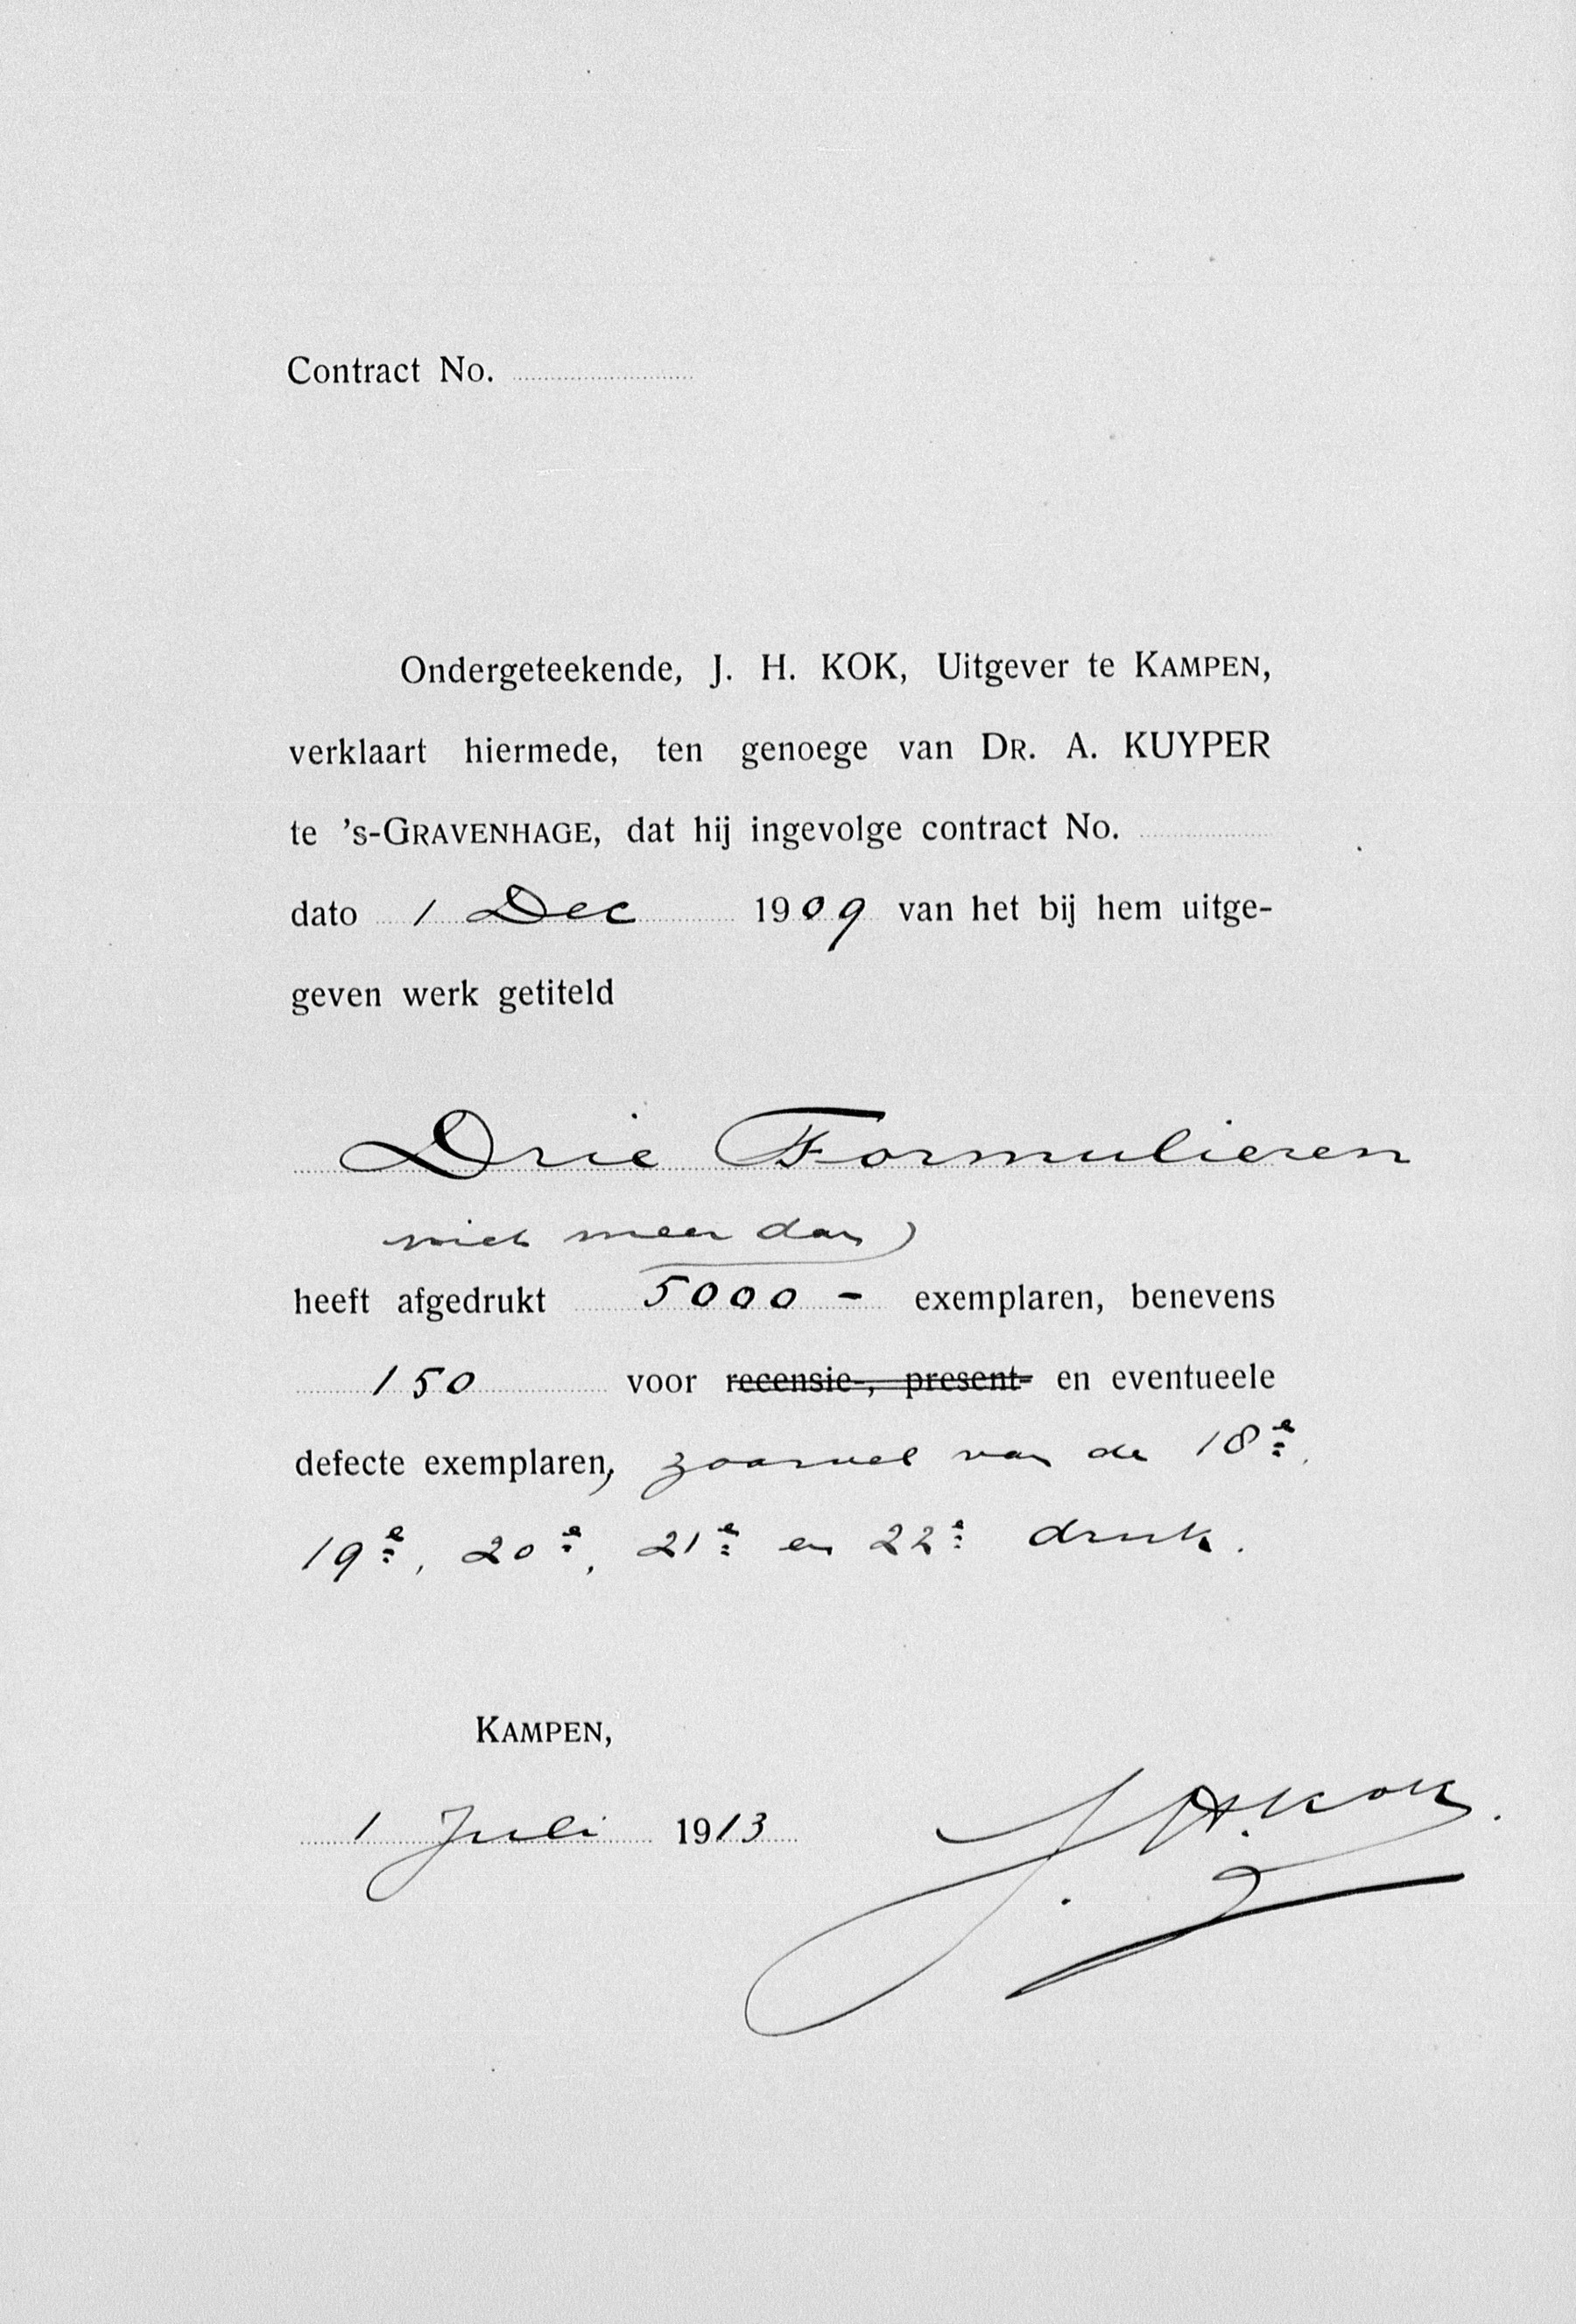 Contract No.
Ondergeteekende, J. H. KOK, Uitgever te KAMPEN,
verklaart hiermede, ten genoege van DR. A. KUYPER
te 's-GRAVENHAGE, dat hij ingevolge contract No.
dato 1 Dec 1909 van het bij hem uitge-
geven werk getiteld
Drie Formulieren
niet meer dan
heeft afgedrukt 5000 - exemplaren, benevens
150 voor recensie-, present- en eventueele
defecte exemplaren, zoowel van de 18e,
19e, 20e, 21e en 22e druk.
KAMPEN,
1 Juli 1913
J. H. Kok.